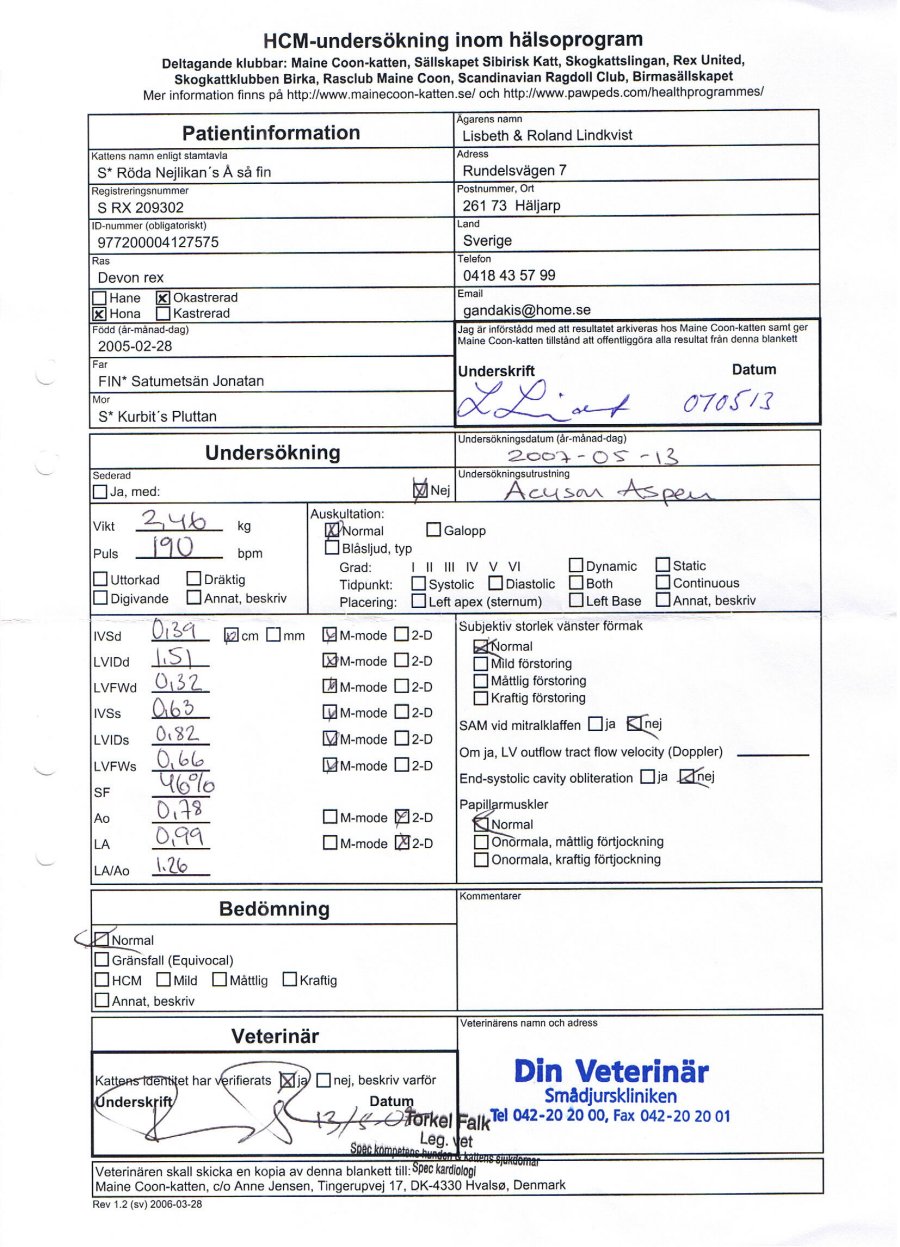 HCM-undersökning inom hälsoprogram
Deltagande klubbar: Maine Coon-katten, Sällskapet Sibirisk Katt, Skogkattslingan, Rex United,
Skogkattklubben Birka, Rasclub Maine Coon, Scandinavian Ragdoll Club, Birmasällskapet
Mer information finns på http://www.mainecoon-katten.se/ och http://www.pawpeds.com/healthprogrammes/
Patientinformation
Kattens namn enligt stamtavla
S* Röda Nejlikan´s Å så fin
Registreringsnummer
S RX 209302
ID-nummer (obligatoriskt)
977200004127575
Ras
Devon rex
Hane Okastrerad
Hona Kastrerad
Född (år-månad-dag)
2005-02-28
Far
FIN* Satumetsän Jonatan
Mor
S* Kurbit´s Pluttan
Ägarens namn
Lisbeth & Roland Lindkvist
Adress
Rundelsvägen 7
Postnummer, Ort
261 73 Häljarp
Land
Sverige
Telefon
0418 43 57 99
Email
gandakis@home.se
Jag är införstådd med att resultatet arkiveras hos Maine Coon-katten samt ger
Maine Coon-katten tillstånd att offentliggöra alla resultat från denna blankett
Underskrift Datum
070513
Undersökning
Undersökningsdatum (år-månad-dag)
2007-05-13
Sederad
Ja, med: Nej
Undersökningsutrustning
Acuson Aspen
Vikt 2,46 kg
Puls 190 bpm
Uttorkad Dräktig
Digivande Annat, beskriv
Auskultation:
Normal Galopp
Blåsljud, typ
Grad: I II III IV V VI Dynamic Static
Tidpunkt: Systolic Diastolic Both Continuous
Placering: Left apex (sternum) Left Base Annat, beskriv
IVSd 0,39 cm mm M-mode 2-D
LVIDd 1.51 M-mode 2-D
LVFWd 0,32 M-mode 2-D
IVSs 0,63 M-mode 2-D
LVIDs 0.82 M-mode 2-D
LVFWs 0,66 M-mode 2-D
SF 46%
Ao 0,78 M-mode 2-D
LA 0,99 M-mode 2-D
LA/Ao 1.26
Subjektiv storlek vänster förmak
Normal
Mild förstoring
Måttlig förstoring
Kraftig förstoring
SAM vid mitralklaffen ja nej
Om ja, LV outflow tract flow velocity (Doppler)
End-systolic cavity obliteration ja nej
Papillarmuskler
Normal
Onormala, måttlig förtjockning
Onormala, kraftig förtjockning
Bedömning
Normal
Gränsfall (Equivocal)
HCM Mild Måttlig Kraftig
Annat, beskriv
Kommentarer
Veterinär
Kattens identitet har verifierats ja nej, beskriv varför
Underskrift Datum
13/5-07
Torkel Falk
Leg. vet
Spec kompetens hundens & kattens sjukdomar
Spec kardiologi
Veterinärens namn och adress
Din Veterinär
Smådjurskliniken
Tel 042-20 20 00, Fax 042-20 20 01
Veterinären skall skicka en kopia av denna blankett till:
Maine Coon-katten, c/o Anne Jensen, Tingerupvej 17, DK-4330 Hvalsø, Denmark
Rev 1.2 (sv) 2006-03-28